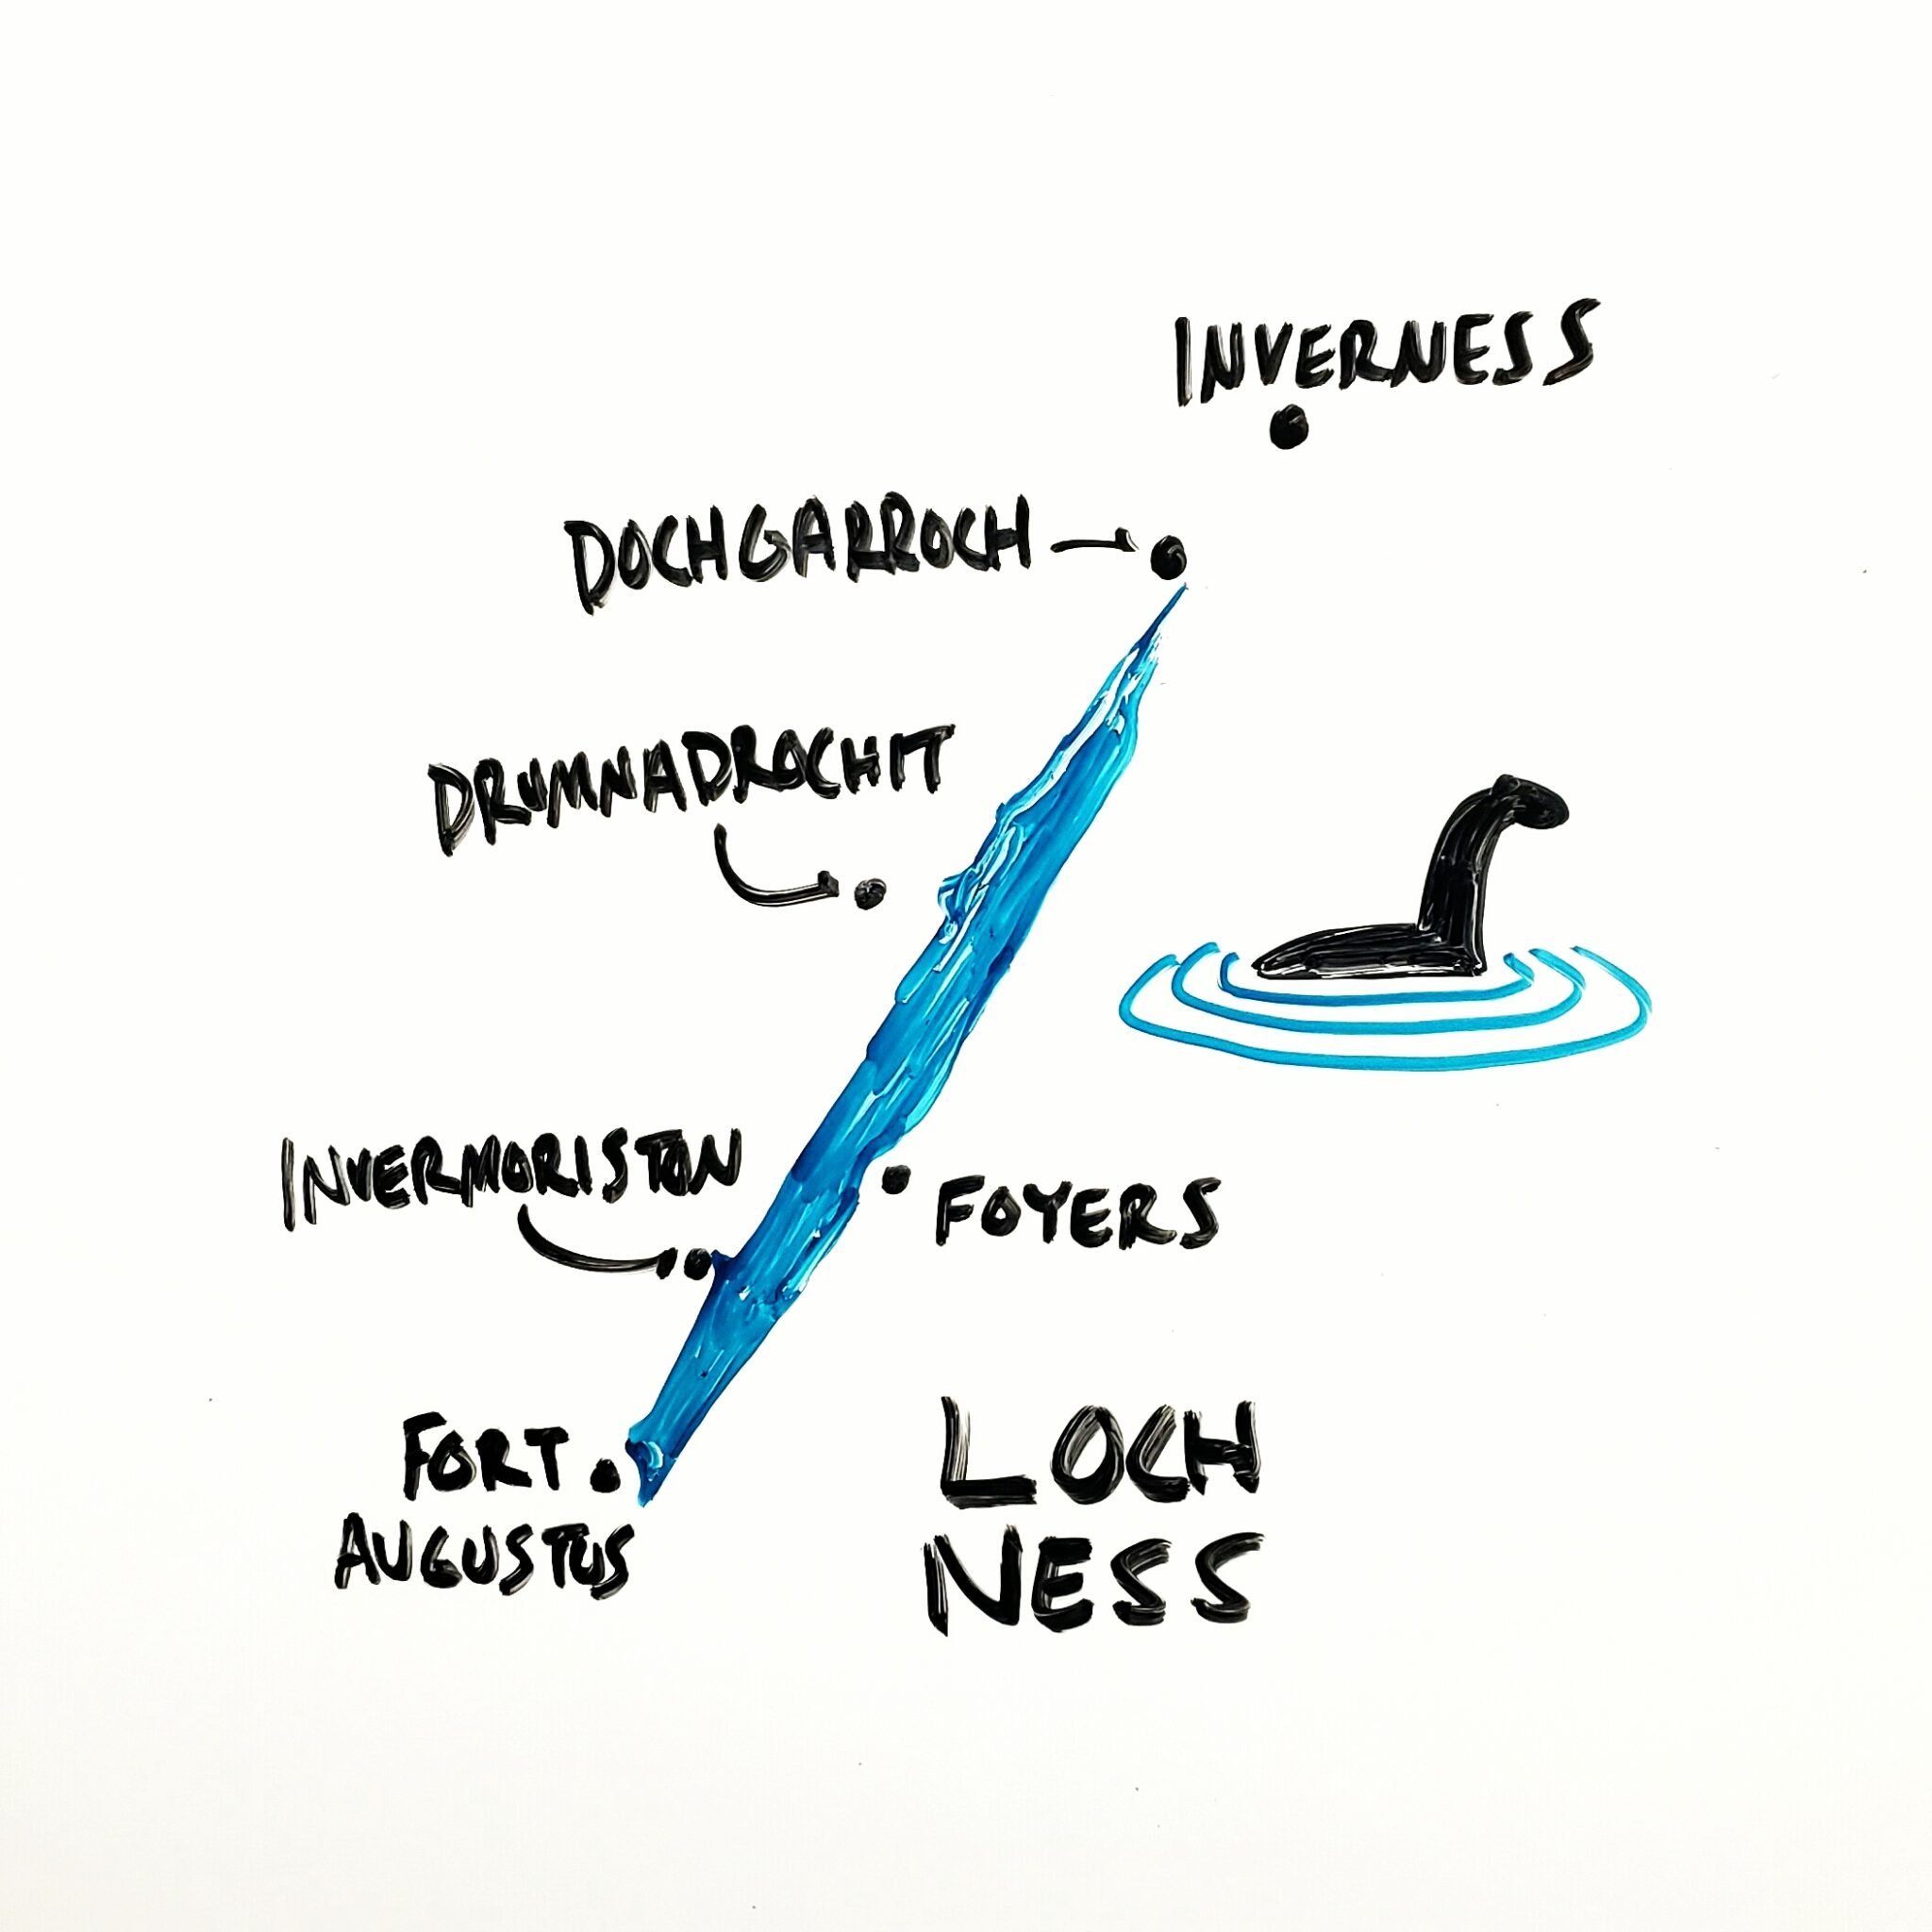 INVERNESS
DOCHGARROCH
DRUMNADROCHIT
INVERMORISTON
FOYERS
FORT
AUGUSTUS
LOCH
NESS